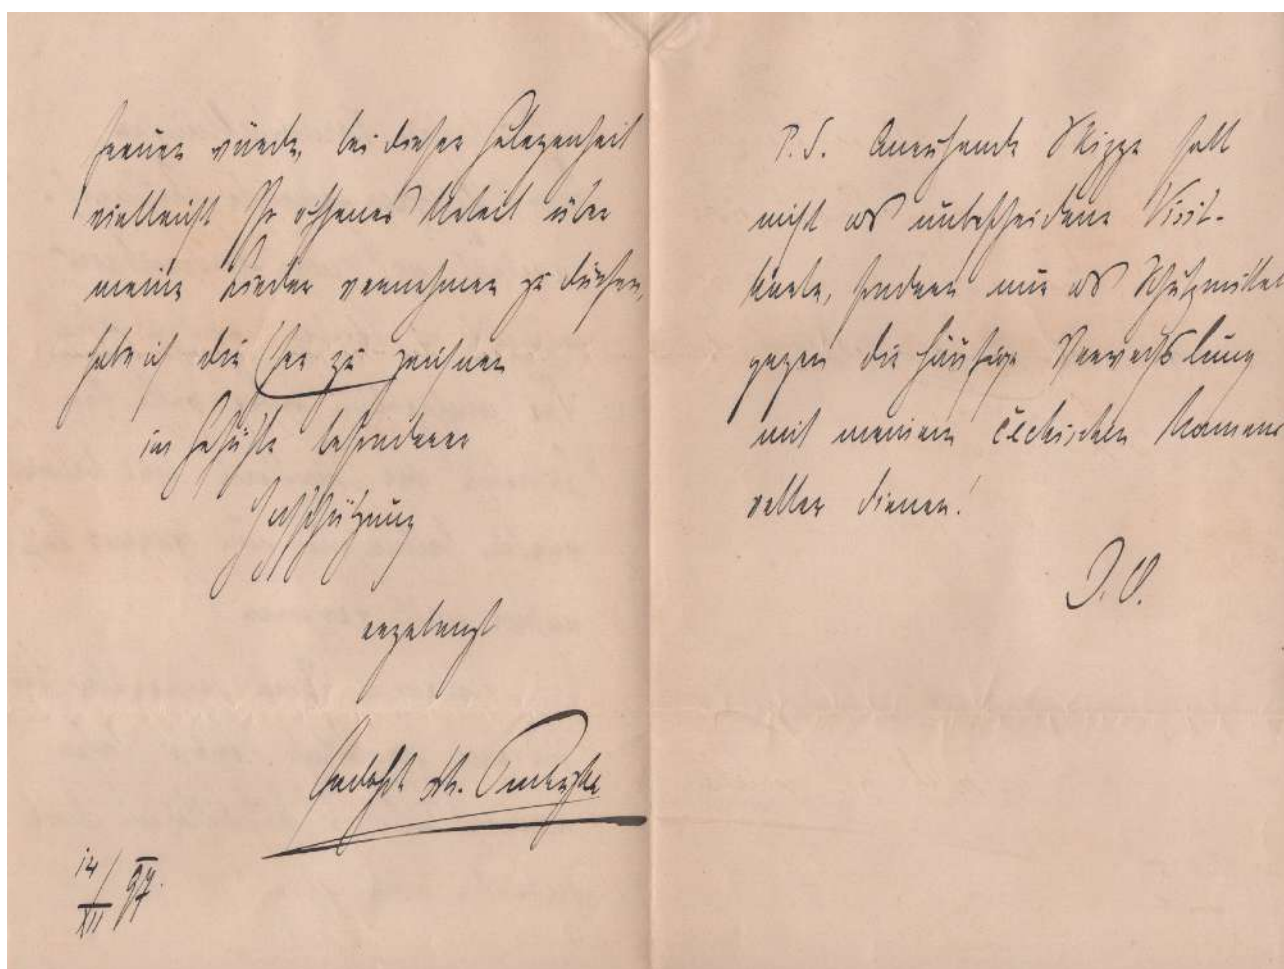 freuen würde, bei dieser Gelegenheit
vielleicht Ihr offenes Urteil über
meine Lieder vernehmen zu dürfen,
habe ich die Ehre zu zeichnen
im Gefühle besonderer
Hochschätzung
ergebenst
14/XII 97.
P.S. Anruhende Skizze soll
nicht als unbescheidene Visit-
karte, sondern nur als Schutzmittel
gegen die häufige Verwechslung
mit meinem čechischen Namens
vetter dienen!
D.O.